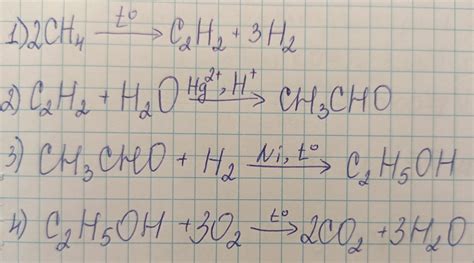 1) 2CH₄ —t°→ C₂H₂ + 3H₂
2) C₂H₂ + H₂O —Hg²⁺, H⁺→ CH₃CHO
3) CH₃CHO + H₂ —Ni, t°→ C₂H₅OH
4) C₂H₅OH + 3O₂ —t°→ 2CO₂ + 3H₂O